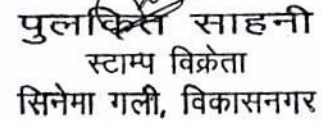 पुलकित साहनी
स्टाम्प विक्रेता
सिनेमा गली, विकासनगर